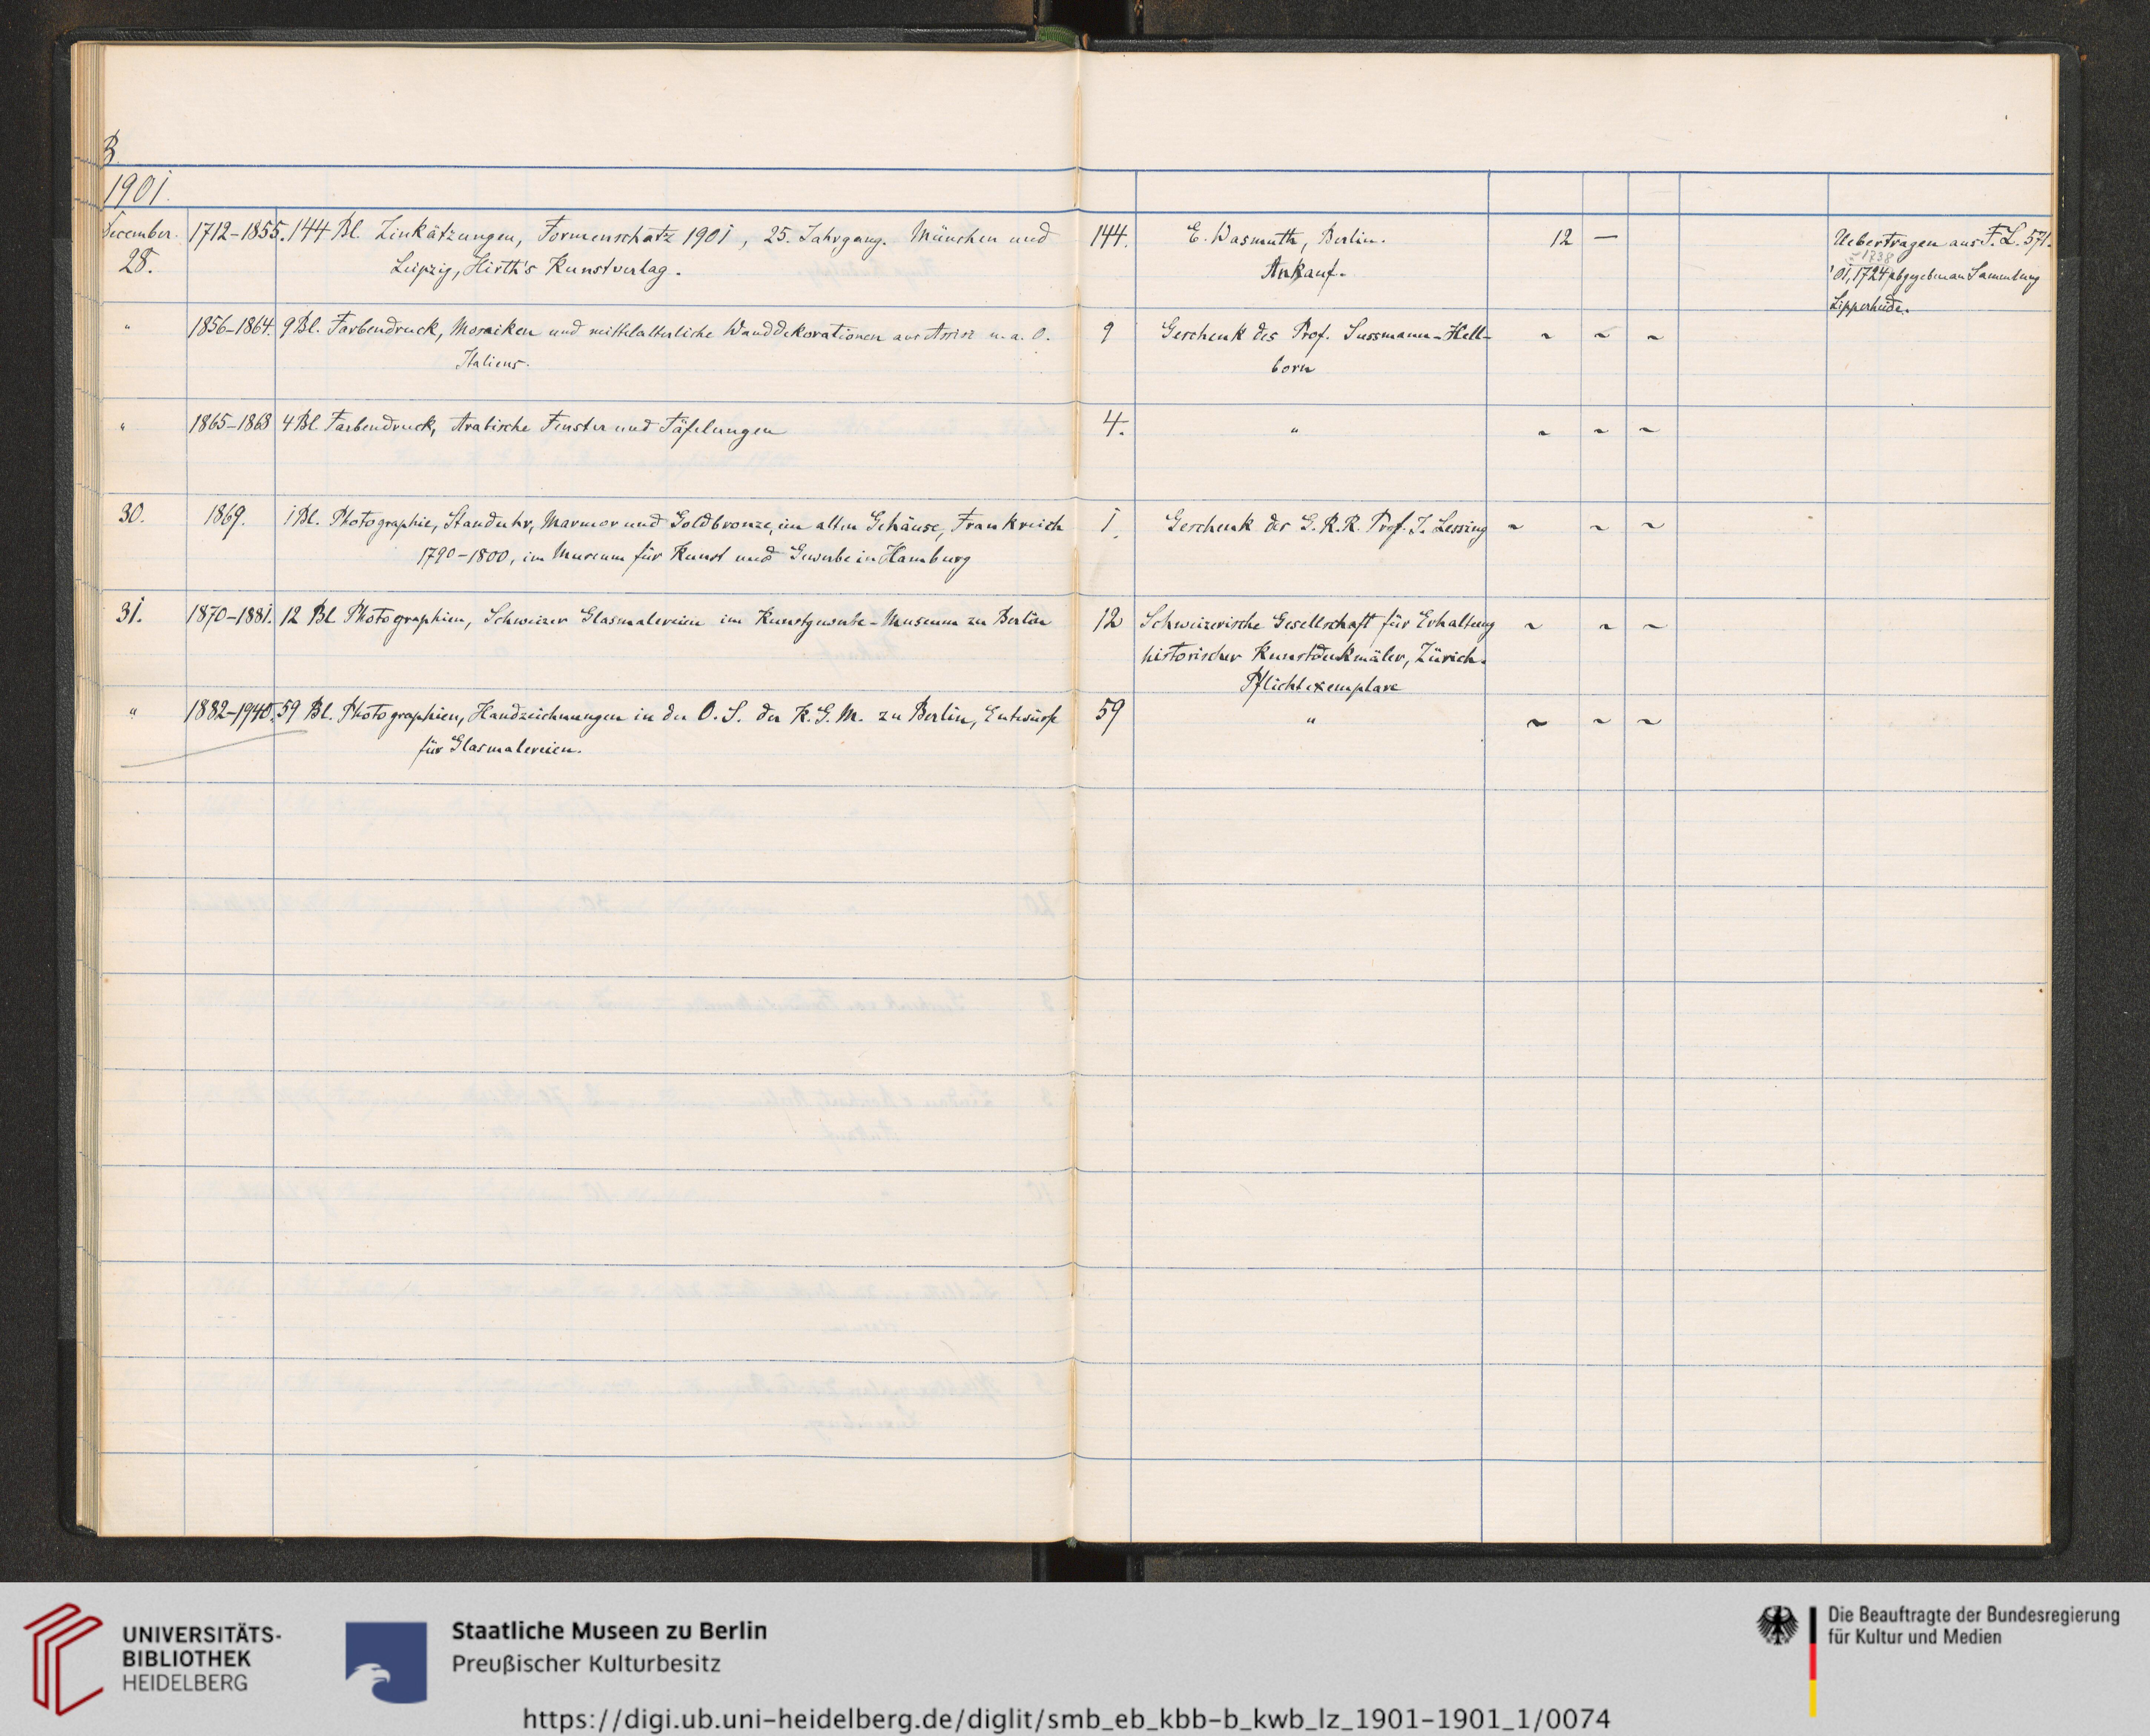 B.
1901.
December. 28. 1712-1855. 144 Bl. Zinkätzungen, Formenschatz 1901, 25. Jahrgang. München und 144. E. Wasmuth, Berlin. 12 — Uebertragen aus F. L. 571.
Leipzig, Hirth's Kunstverlag. Ankauf. 1738
'01,1724 abgegeben an Sammlung
Lipperheide.
" 1856-1864. 9 Bl. Farbendruck, Mosaiken und mittelalterliche Wanddekorationen aus Assisi u. a. O. 9 Geschenk des Prof. Sussmann-Hell- ~ ~ ~
Italiens. born
" 1865-1868 4 Bl. Farbendruck, Arabische Fenster und Täfelungen 4. " ~ ~ ~
30. 1869. 1 Bl. Photographie, Standuhr, Marmor und Goldbronze, im alten Gehäuse, Frankreich 1. Geschenk des G. R. R. Prof. J. Lessing ~ ~ ~
1790-1800, im Museum für Kunst und Gewerbe in Hamburg
31. 1870-1881. 12 Bl. Photographien, Schweizer Glasmalereien im Kunstgewerbe-Museum zu Berlin 12 Schweizerische Gesellschaft für Erhaltung ~ ~ ~
historischer Kunstdenkmäler, Zürich.
Pflichtexemplare
" 1882-1940. 59 Bl. Photographien, Handzeichnungen in der O. S. des K. G. M. zu Berlin, Entwürfe 59 " ~ ~ ~
für Glasmalereien.
UNIVERSITÄTS-
BIBLIOTHEK
HEIDELBERG
Staatliche Museen zu Berlin
Preußischer Kulturbesitz
Die Beauftragte der Bundesregierung
für Kultur und Medien
https://digi.ub.uni-heidelberg.de/diglit/smb_eb_kbb-b_kwb_lz_1901-1901_1/0074